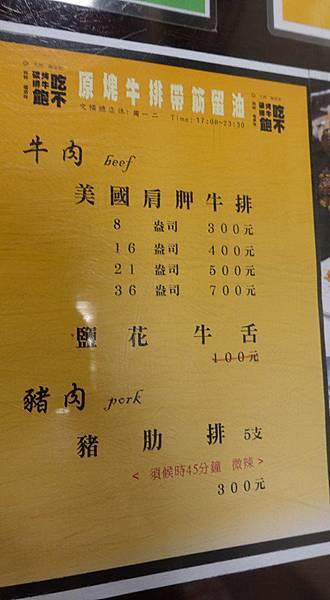 吃不飽
碳烤牛排
原塊牛排帶筋留油
吃不飽
碳烤牛排
Time: 17:00~23:30
牛肉 beef
美國肩胛牛排
8 盎司 300元
16 盎司 400元
21 盎司 500元
36 盎司 700元
鹽花牛舌
100元
豬肉 pork
豬肋排 5支
< 須候時45分鐘 微辣 >
300元